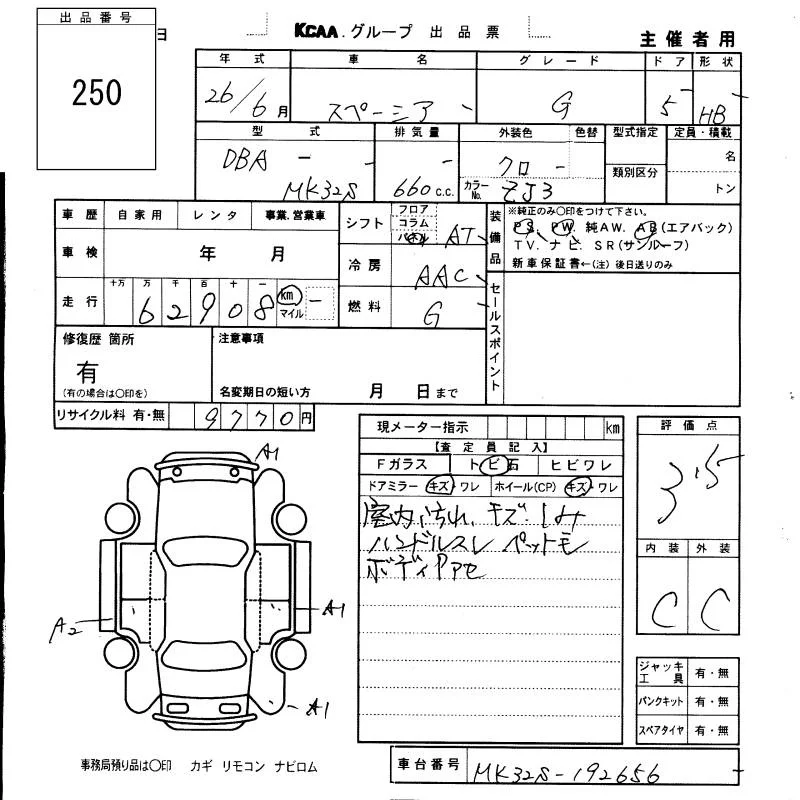 出品番号
250
日
KCAA.グループ 出品票
主催者用
年式 車名 グレード ドア 形状
26/6月 スペーシア G 5 HB
型式 排気量 外装色 色替 型式指定 定員・積載
DBA - - クロ - 名
MK32S 660 C.C. カラーNo. ZJ3 類別区分 トン
車歴 自家用 レンタ 事業、営業車 シフト フロア コラム パネル AT
装備品 ※純正のみ〇印をつけて下さい。
PS、PW、純AW、AB(エアバック)
TV、ナビ、SR(サンルーフ)
新車保証書←(注)後日送りのみ
車検 年 月 冷房 AAC
走行 十万 万 千 百 十 一 km マイル
62908 -
燃料 G
セールスポイント
修復歴 箇所
有
(有の場合は〇印を)
注意事項
名変期日の短い方 月 日まで
リサイクル料 有・無 9770円
現メーター指示 km
【査定員記入】
Fガラス トビ石 ヒビワレ
ドアミラー キズ・ワレ ホイール(CP) キズ・ワレ
室内汚れ、キズ・しみ
ハンドルスレ ペットモ
ボディPアセ
評価点
3.5
内装 外装
C C
A1
A2
A1
A1
ジャッキ工具 有・無
パンクキット 有・無
スペアタイヤ 有・無
事務局預り品は〇印 カギ リモコン ナビロム
車台番号 MK32S-192656